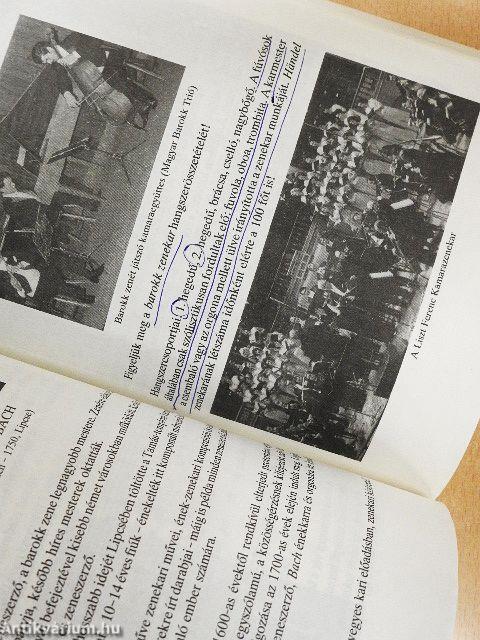 Barokk zenét játszó kamaraegyüttes (Magyar Barokk Trió)
Figyeljük meg a barokk zenekar hangszerösszetételét!
Hangszercsoportjai: 1. hegedű, 2. hegedű, brácsa, cselló, nagybőgő. A fúvósok
általában csak szólisztikusan fordultak elő: fuvola, oboa, trombita. A karmester
a csembaló vagy az orgona mellett ülve irányította a zenekar munkáját. Händel
zenekarának létszáma időnként elérte a 100 főt is!
A Liszt Ferenc Kamarazenekar
ACH
– 1750, Lipcse)
szerző, a barokk zene legnagyobb mestere. Zenés
ja, később híres mesterek oktatták.
efejeztével kisebb német városokban működött
zeneszerző.
szabb idejét Lipcsében töltötte a Tamás-templom
10–14 éves fiúk – énekelték írt kompozícióit
űve zenekari művei, ének-zenekari kompozíciói
ekre írt darabjai – máig is példa minden zeneszerző
ló ember számára.
600-as évektől rendkívül elterjedt
egyszólamú, a közösségérzésnek kifejezést
gozása az 1700-as évek elején
eneszerző, Bach énekkarra és orgonára
vegyes kari előadásban, zenekar
Antikvárium.hu